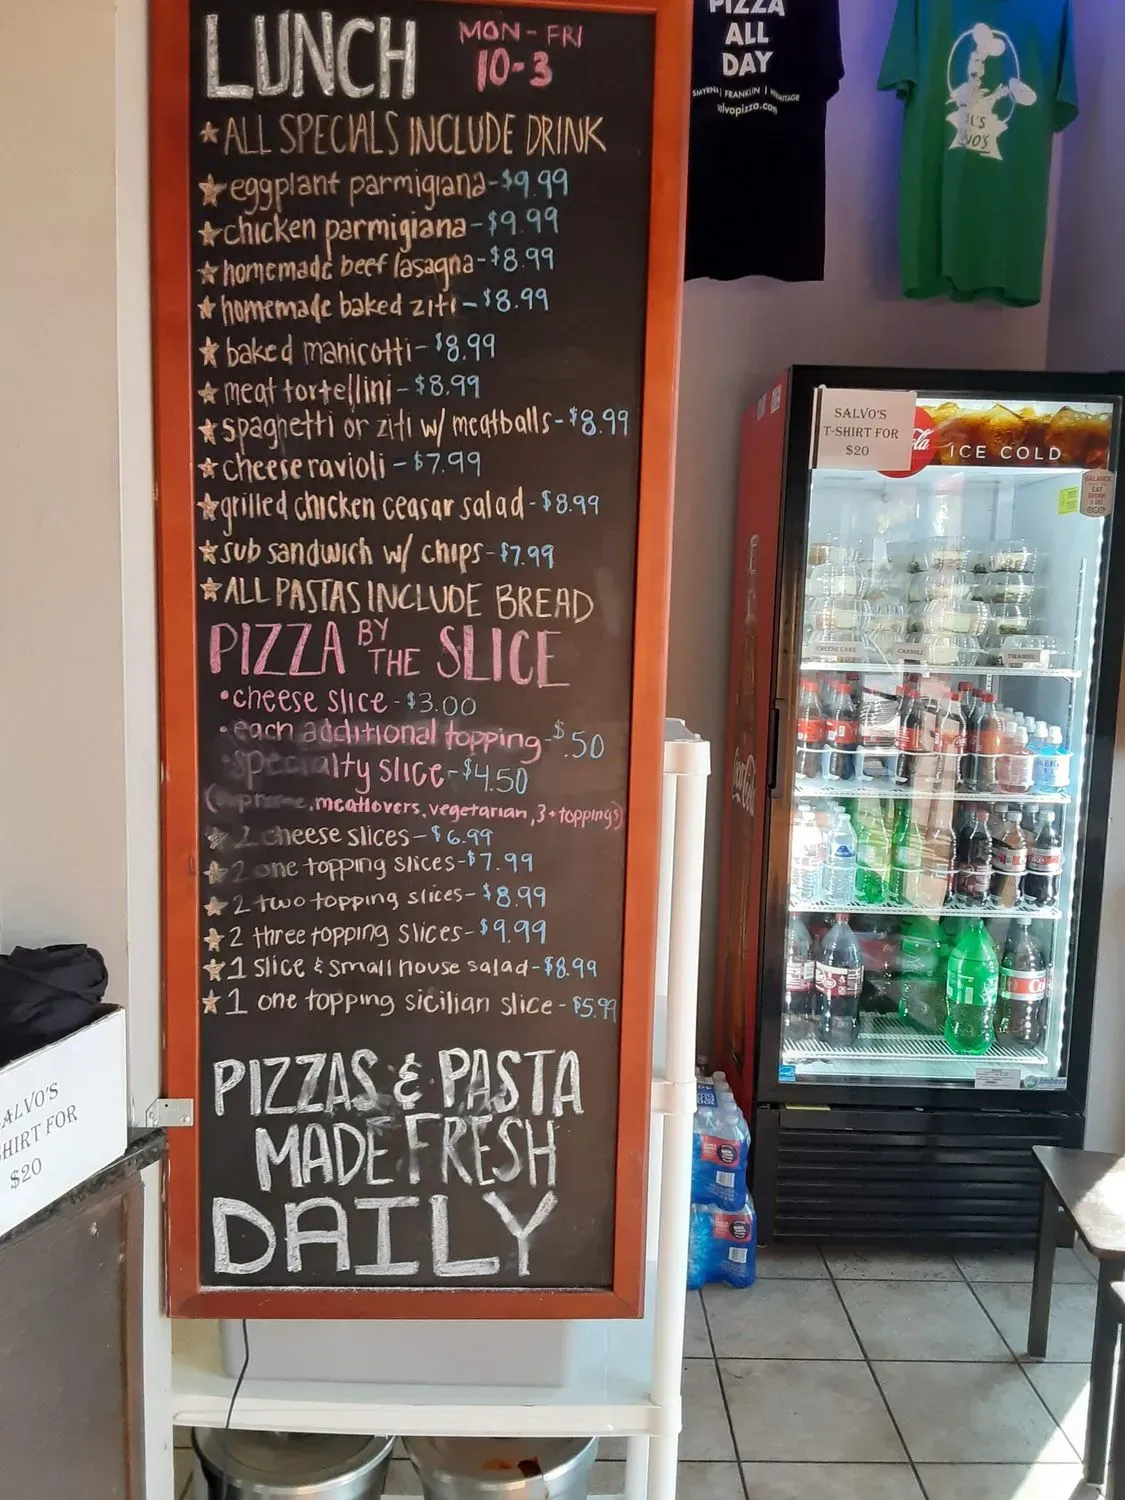 LUNCH MON-FRI 10-3
★ALL SPECIALS INCLUDE DRINK
★eggplant parmigiana-$9.99
★chicken parmigiana-$9.99
★homemade beef lasagna-$8.99
★homemade baked ziti-$8.99
★baked manicotti-$8.99
★meat tortellini-$8.99
★spaghetti or ziti w/ meatballs-$8.99
★cheese ravioli-$7.99
★grilled chicken ceasar salad-$8.99
★sub sandwich w/ chips-$7.99
★ALL PASTAS INCLUDE BREAD
PIZZA BY THE SLICE
•cheese slice-$3.00
•each additional topping-$.50
•specialty slice-$4.50
(supreme, meatlovers, vegetarian, 3+toppings)
★2 cheese slices-$6.99
★2 one topping slices-$7.99
★2 two topping slices-$8.99
★2 three topping slices-$9.99
★1 slice & small house salad-$8.99
★1 one topping sicilian slice-$5.99
PIZZAS & PASTA
MADE FRESH
DAILY
PIZZA
ALL
DAY
SMYRNA | FRANKLIN |
SALVO'S
T-SHIRT FOR
$20
ICE COLD
CHEESE CAKE
CANNOLI
TIRAMISU
Coca-Cola
imbera
ALVO'S
SHIRT FOR
$20